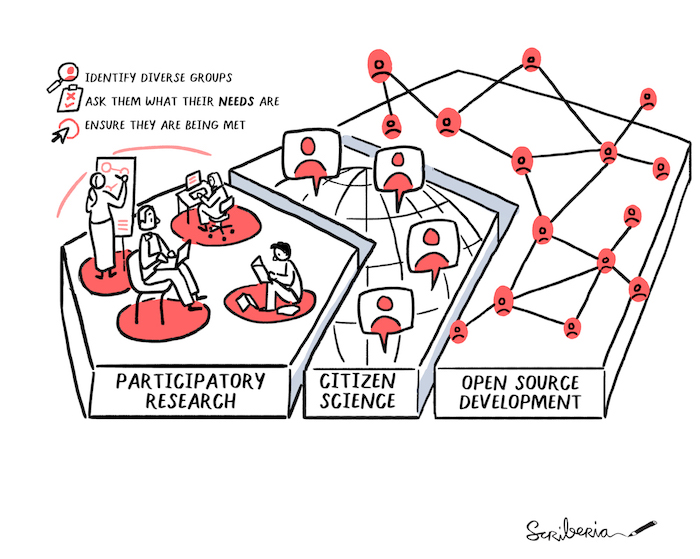 IDENTIFY DIVERSE GROUPS
ASK THEM WHAT THEIR NEEDS ARE
ENSURE THEY ARE BEING MET
PARTICIPATORY
RESEARCH
CITIZEN
SCIENCE
OPEN SOURCE
DEVELOPMENT
Scriberia